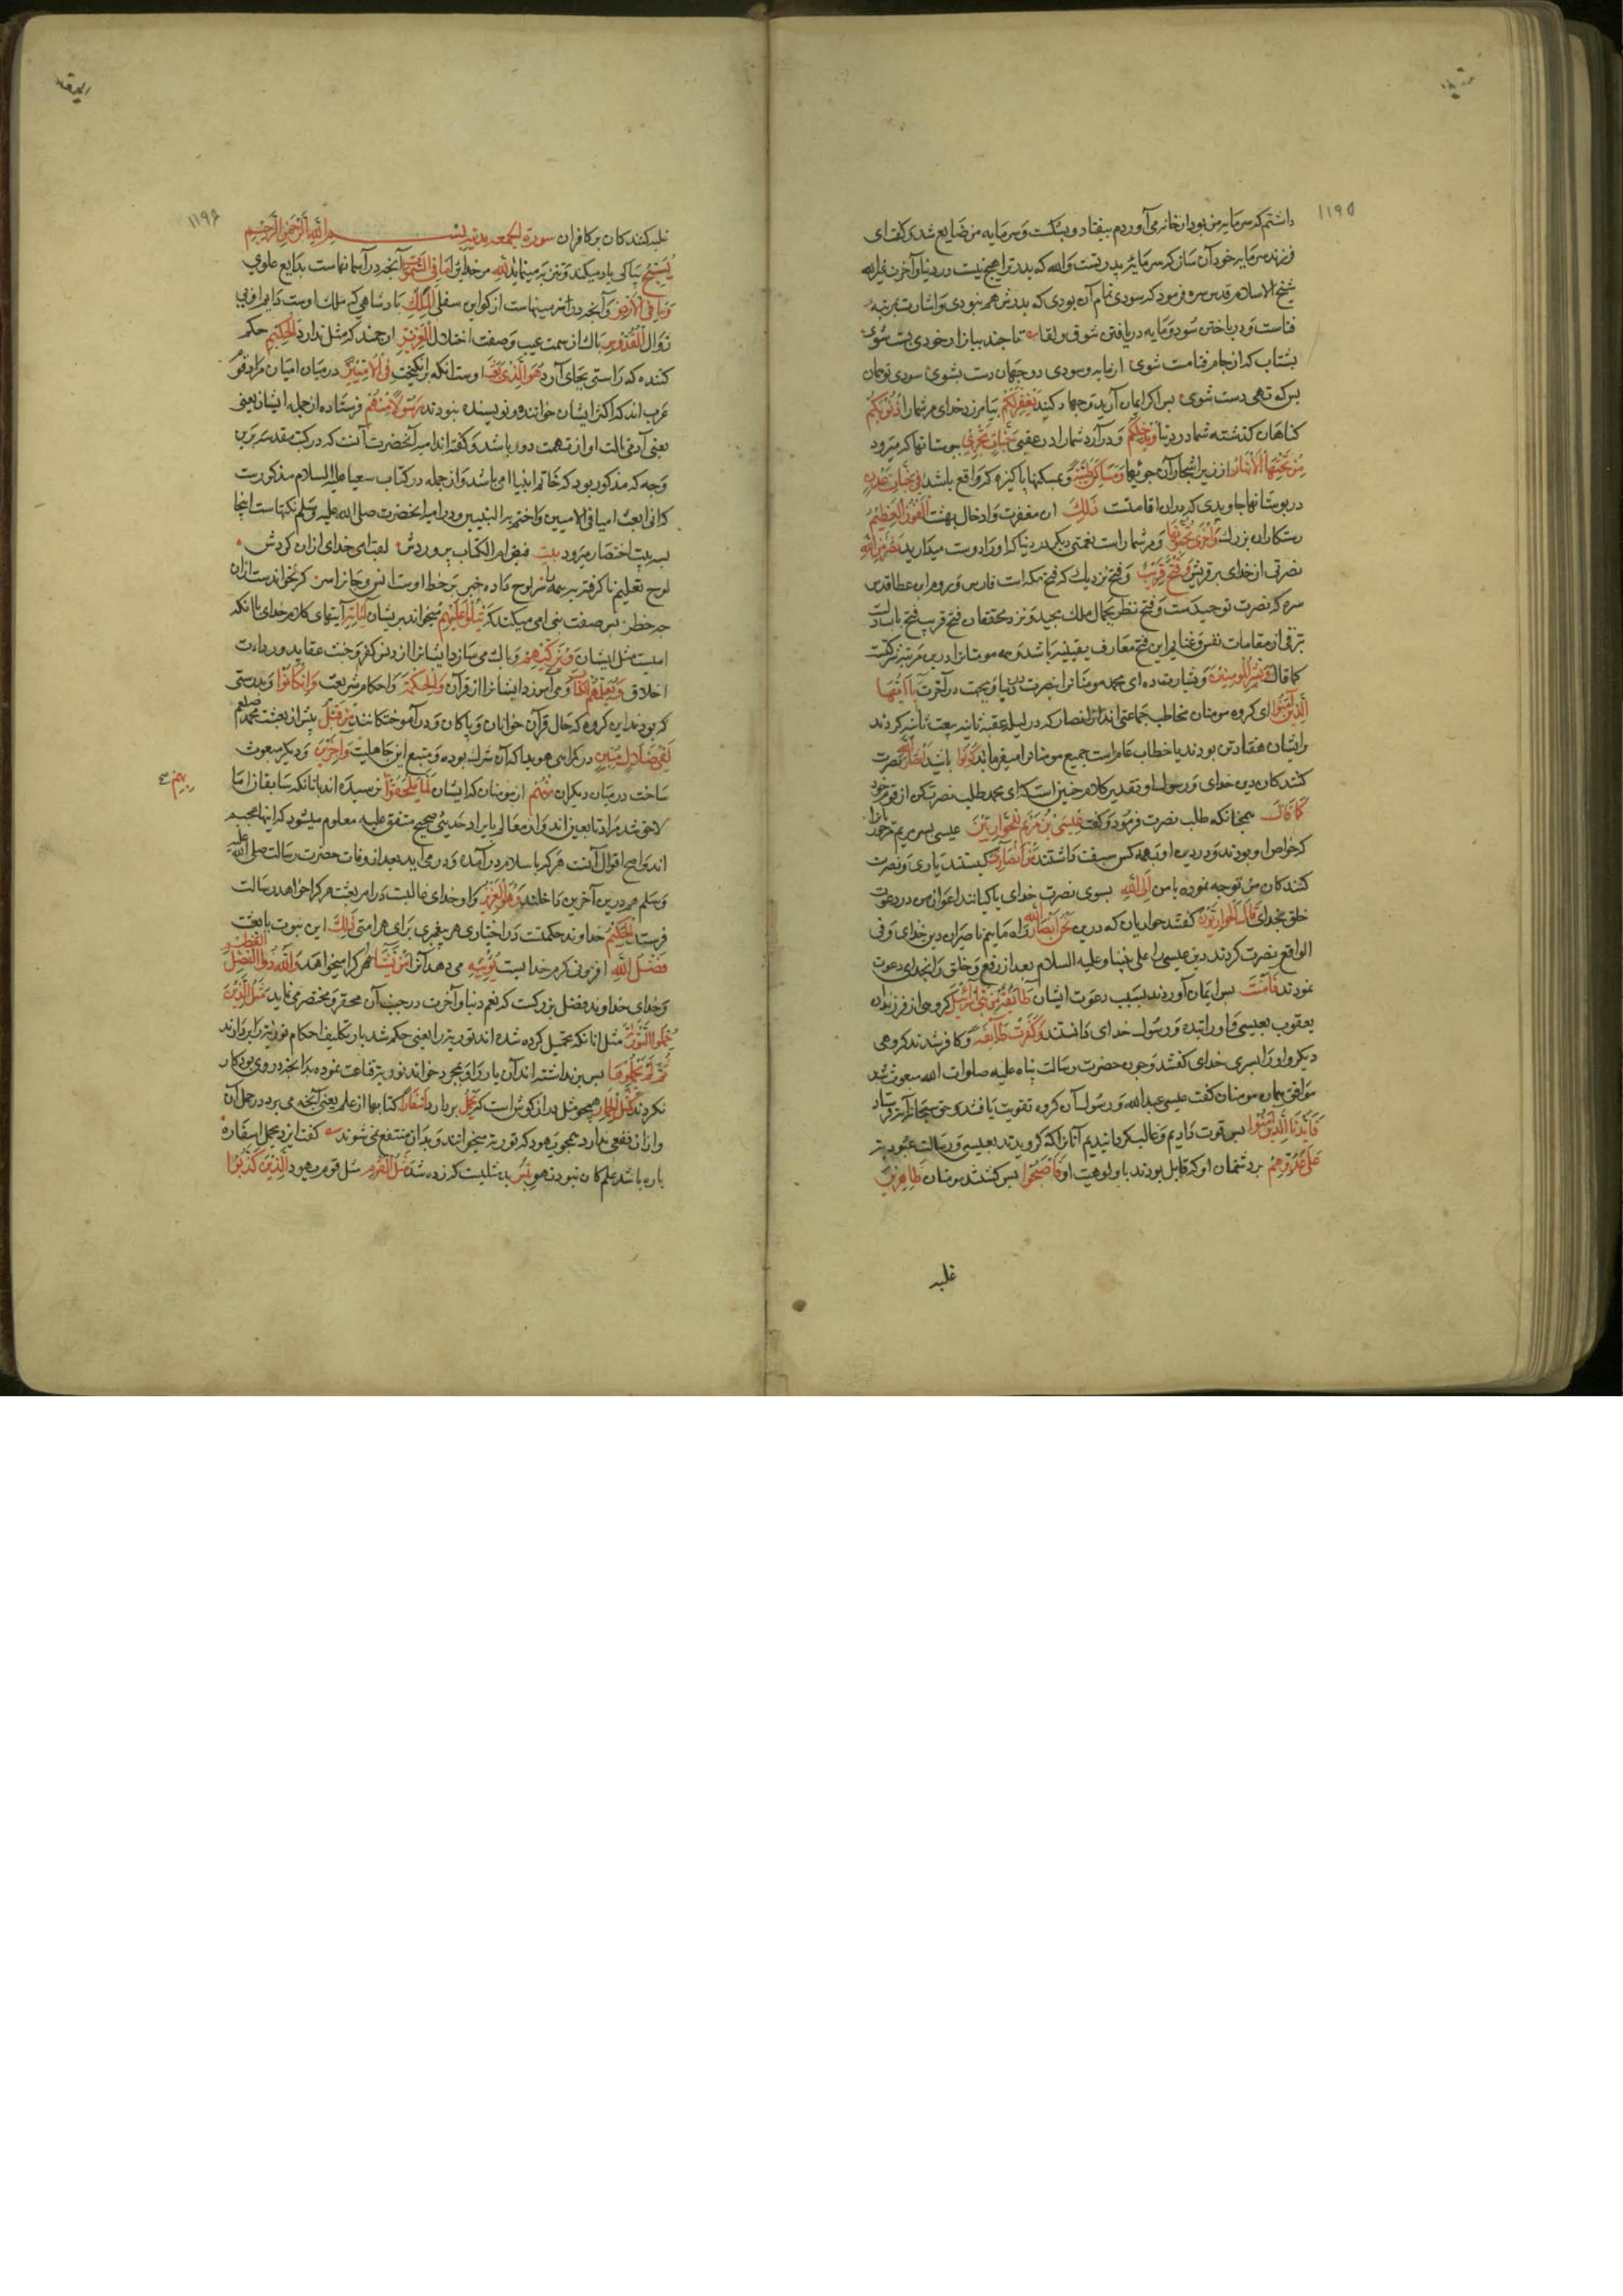 ۱۱۹۵
داشتم که سرمایه من بود از خانه می آوردم بیفتاد و بشکست و سرمایه من ضایع شد گفت ای
فرزند سرمایه خود آن ساز که سرمایه پدر تست والله که پدر ترا هیچ نیست در دنیا و آخرت غیر الله
شیخ الاسلام قدس سره فرمود که سودی تمام آن بودی که پدرش هم نبودی و اشارت بمرتبه
فناست و در باختن سود و مایه در یافتن شوق و لقا تا چند ببازار خودی پست شوی
بشتاب که از جام فنا مست شوی از مایه و سودی دو جهان دست بشوی سودی تو همان
بس که تهی دست شوی پس اگر ایمان آرید و جهاد کنید یَغْفِرْلَکُمْ بیامرزد خدای مر شما را ذُنُوبَکُمْ
گناهان گذشته شما در دنیا وَیُدْخِلْکُمْ و در آرد شما را در عقبی جَنَّاتٍ تَجْرِی ببوستانها که میرود
مِنْ تَحْتِهَا الْاَنْهَارُ از زیر اشجار آن جویها وَمَسَاکِنَ طَیِّبَةً و بمسکنها پاکیزه که واقع باشد فِی جَنَّاتِ عَدْنٍ
در بوستانها جاویدی که در ان اقامتست ذَلِکَ ان مغفرت و ادخال بهشت الْفَوْزُ الْعَظِیمُ
رستکاران بزرک وَاُخْرَی تُحِبُّونَهَا و مر شما راست نعمتی دیگر در دنیا که او را دوست میدارید نَصْرٌ مِنَ اللهِ
نصرتی از خدای بر قریش وَفَتْحٌ قَرِیبٌ و فتح نزدیک که فتح مکه است فارس و روم ابن عطا قدس
سره که نصرت توحیدست و فتح نظر بجمال ملک مجید و نزد محققان فتح قریب فتح باب
ترقی از مقامات نفس و غنایم این فتح معارف یقینیه باشد و همه مومنانرا درین مرتبه شرکتست
کما قال وَبَشِّرِ الْمُؤْمِنِینَ و بشارت ده ای محمد مومنانرا بنصرت در دنیا و بجنت در آخرت یَا اَیُّهَا
الَّذِینَ آمَنُوا ای گروه مومنان مخاطب جماعتی اند از انصار که در لیله عقبه ثانیه بیعت ثانیه کردند
و ایشان هفتاد تن بودند یا خطاب عام است جمیع مومنانرا میفرماید کُونُوا باشید اَنْصَارَ اللهِ نصرت
کنندگان دین خدای و رسول او و تقدیر کلام چنین است که ای محمد طلب نصرت کن از قوم خود
کَمَا قَالَ همچنانکه طلب نصرت فرمود و گفت عِیسَی بْنُ مَرْیَمَ لِلْحَوَارِیِّینَ عیسی پسر مریم مر
که خواص او بودند و در دین او بر همه کس سبقت داشتند مَنْ اَنْصَارِی کیستند یاری و نصرت
کنندگان من توجه نموده با من اِلَی اللهِ بسوی نصرت خدای یا کیانند اعوان من در دعوت
خلق بخدای قَالَ الْحَوَارِیُّونَ گفتند حواریان که در دین نَحْنُ اَنْصَارُ اللهِ ماییم ناصران دین خدای و فی
الواقع نصرت کردند دین عیسی را علی نبینا و علیه السلام بعد از رفع و خلق را بخدای دعوت
نمودند فَآمَنَتْ پس ایمان آوردند بسبب دعوت ایشان طَائِفَةٌ مِنْ بَنِی اِسْرَائِیلَ گروهی از فرزندان
یعقوب بعیسی و او را بنده و رسول خدای دانستند وَکَفَرَتْ طَائِفَةٌ و کافر شدند گروهی
دیگر و او را پسر خدای گفتند و چون حضرت رسالت پناه علیه صلوات الله مبعوث شد
موافق همان مومنان گفت عیسی عبدالله و رسول آن گروه تقویت یافتند و حق سبحانه آیه فرستاد
فَاَیَّدْنَا الَّذِینَ آمَنُوا پس قوت دادیم و غالب گردانیدیم آنانرا که گرویدند بعیسی و رسالت
عَلَی عَدُوِّهِمْ بر دشمنان او که قایل بودند با الوهیت او فَاَصْبَحُوا پس گشتند مومنان ظَاهِرِینَ
غلبه
۱۱۹۶
غلبه کنندگان بر کافران سورة الجمعه مدنیه بسم الله الرحمن الرحیم
یُسَبِّحُ بپاکی یاد میکند و تنزیه مینماید لِلّهِ مر خدایرا مَا فِی السَّمَوَاتِ آنچه در آسمانهاست بدایع علوی
وَمَا فِی الْاَرْضِ و آنچه در زمینهاست از کواین سفلی الْمَلِکِ پادشاهی که ملک اوست دایم او بی
زوال الْقُدُّوسِ پاک از سمت عیب و صفت اختلال الْعَزِیزِ ارجمند که مثل ندارد الْحَکِیمِ حکم
کننده که راستی بجای آرد هُوَ الَّذِی بَعَثَ اوست آنکه بر انگیخت فِی الْاُمِّیِّینَ در میان امیان مراد قوم
عرب اند که اکثر ایشان خواننده و نویسنده نبودند رَسُولًا مِنْهُمْ فرستاده از جمله ایشان یعنی
یعنی آدمی تا از تهمت دور باشد و گفته اند امیه آنحضرت آنست که در کتب متقدمه برین
وجه که مذکور بود که خاتم انبیا امی باشد و از جمله در کتاب شعیا علیه السلام مذکورست
که انی ابعث امیا فی الامیین و اختم به النبیین و در امیه آنحضرت صلی الله علیه و سلم نکتهاست اینجا
بسه بیت اختصار میرود بیت فیض ام الکتاب پروردش لقب امی خدای ازان کردش
لوح تعلیم ناکرفته ببر همه ز اسرار لوح داده خبر بر خط اوست انس و جانرا سر گر نخواندست ازان
چه خطر پس صفت نبی امی میکند که یَتْلُو عَلَیْهِمْ میخواند بریشان آیَاتِهِ آیتهای کلام خدای با آنکه
امیست مثل ایشان وَیُزَکِّیهِمْ و پاک می سازد ایشانرا از دنس کفر و خبث عقاید و رداءت
اخلاق وَیُعَلِّمُهُمُ الْکِتَابَ و می آموزد ایشانرا از قرآن وَالْحِکْمَةَ و احکام شریعت وَاِنْ کَانُوا و بدرستی
که بودند این گروه که حال قرآن خوانان و پاکان و در آموختگانند مِنْ قَبْلُ پیش از بعثت محمد صلعم
لَفِی ضَلَالٍ مُبِینٍ در گمراهی هویدا که آن شرک بوده و متبع آیین جاهلیت وَآخَرِینَ و دیگر مبعوث
ساخت در میان دیگران مِنْهُمْ از مومنان که ایشان لَمَّا یَلْحَقُوا بِهِمْ نرسیده اند بآنانکه سابقان اما
لاحق شد مراد تابعین اند و اند معالم بایراد حدیثی صحیح متفق علیه معلوم میشود که اینها عجم
اند و اصح اقوال آنست هر که باسلام در آمده و در می آید بعد از وفات حضرت رسالت صلی الله علیه
و سلم همه درین آخرین داخلند وَهُوَ الْعَزِیزُ و او خدای غالبست در امر بعثت هر کرا خواهد رسالت
فرستد الْحَکِیمُ خداوند حکمتست در اختیاری هر پیغمبری برای هر امتی ذَلِکَ این نبوت یا بعثت
فَضْلُ اللهِ افزونی کرم خدایست یُؤْتِیهِ می دهد آنرا مَنْ یَشَاءُ هر کرا میخواهد وَاللهُ ذُو الْفَضْلِ الْعَظِیمِ
و خدای خداوند فضل بزرگست که نعم دنیا و آخرت در جنب آن محقر و مختصر می نماید مَثَلُ الَّذِینَ
حُمِّلُوا التَّوْرَاةَ مثل آنانکه تحمیل کرده شده اند توریة را یعنی حکم شد بار تکلیف احکام توریة را بردارند
ثُمَّ لَمْ یَحْمِلُوهَا پس بر نداشته اند آن بار را و بمجرد خواند توریة قناعت نموده بدانچه در وی بود کار
نکردند کَمَثَلِ الْحِمَارِ همچو مثل درازگوش است که یَحْمِلُ بر دارد اَسْفَارًا کتابها از علم یعنی آنچه می برد در حمل آن
و ازان نفعی ندارد همچو یهود که توریة میخوانند و بدان منتفع نمی شوند گفت ایزد یحمل اسفاره
باره باشد علم کان نبود ز هو بِئْسَ بد مثلیست که زده شد مَثَلُ الْقَوْمِ مثل قوم یهود الَّذِینَ کَذَّبُوا
بهم